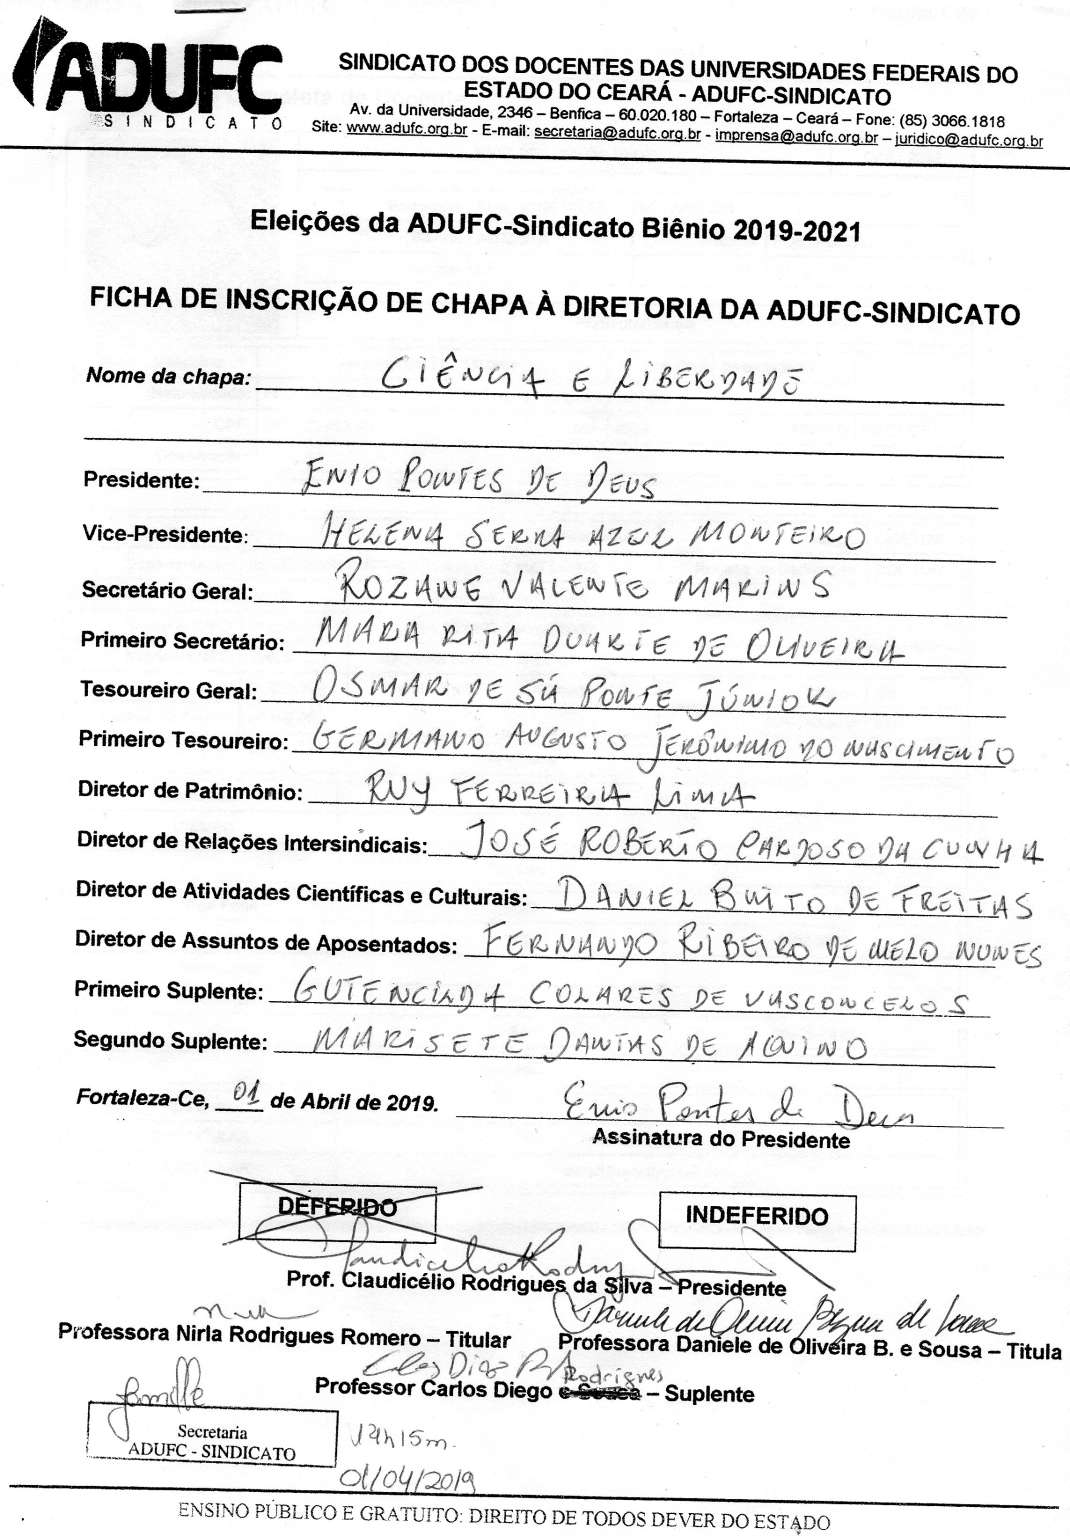 ADUFC
SINDICATO
SINDICATO DOS DOCENTES DAS UNIVERSIDADES FEDERAIS DO
ESTADO DO CEARÁ - ADUFC-SINDICATO
Av. da Universidade, 2346 – Benfica – 60.020.180 – Fortaleza – Ceará – Fone: (85) 3066.1818
Site: www.adufc.org.br - E-mail: secretaria@adufc.org.br - imprensa@adufc.org.br – juridico@adufc.org.br
Eleições da ADUFC-Sindicato Biênio 2019-2021
FICHA DE INSCRIÇÃO DE CHAPA À DIRETORIA DA ADUFC-SINDICATO
Nome da chapa: CIÊNCIA E LIBERDADE
Presidente: ENIO PONTES DE DEUS
Vice-Presidente: HELENA SERRA AZUL MONTEIRO
Secretário Geral: ROZANE VALENTE MARINS
Primeiro Secretário: MARA RITA DUARTE DE OLIVEIRA
Tesoureiro Geral: OSMAR DE SÁ PONTE JÚNIOR
Primeiro Tesoureiro: GERMANO AUGUSTO JERÔNIMO DO NASCIMENTO
Diretor de Patrimônio: RUY FERREIRA LIMA
Diretor de Relações Intersindicais: JOSÉ ROBERTO CARDOSO DA CUNHA
Diretor de Atividades Científicas e Culturais: DANIEL BRITO DE FREITAS
Diretor de Assuntos de Aposentados: FERNANDO RIBEIRO DE MELO NUNES
Primeiro Suplente: GUTENCILDA COLARES DE VASCONCELOS
Segundo Suplente: MARISETE DANTAS DE AQUINO
Fortaleza-Ce, 01 de Abril de 2019. Enio Pontes de Deus
Assinatura do Presidente
DEFERIDO INDEFERIDO
Claudicélio Rodrigues
Prof. Claudicélio Rodrigues da Silva – Presidente
Professora Nirla Rodrigues Romero – Titular Professora Daniele de Oliveira B. e Sousa – Titula
Carlos Diego Rodrigues
Professor Carlos Diego – Suplente
Secretaria
ADUFC - SINDICATO
14h15m.
01/04/2019
ENSINO PÚBLICO E GRATUITO: DIREITO DE TODOS DEVER DO ESTADO